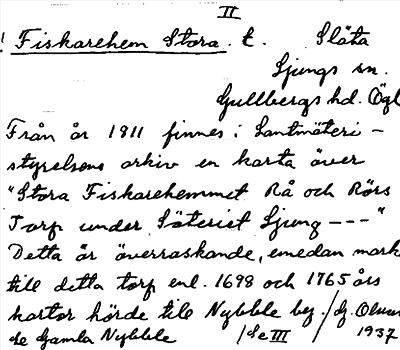 II
Fiskarehem Stora. t. Släta
Ljungs sn.
Gullbergs hd. Ögl
Från år 1811 finnes i Lantmäteri-
styrelsens arkiv en karta över
"Stora Fiskarehemmet Rå och Rörs
Torp under Säteriet Ljung ---"
Detta är överraskande, emedan mark
till detta torp enl. 1698 och 1765 års
kartor hörde till Nybble by. /g. Olmar
se Gamla Nybble /Se III 1937